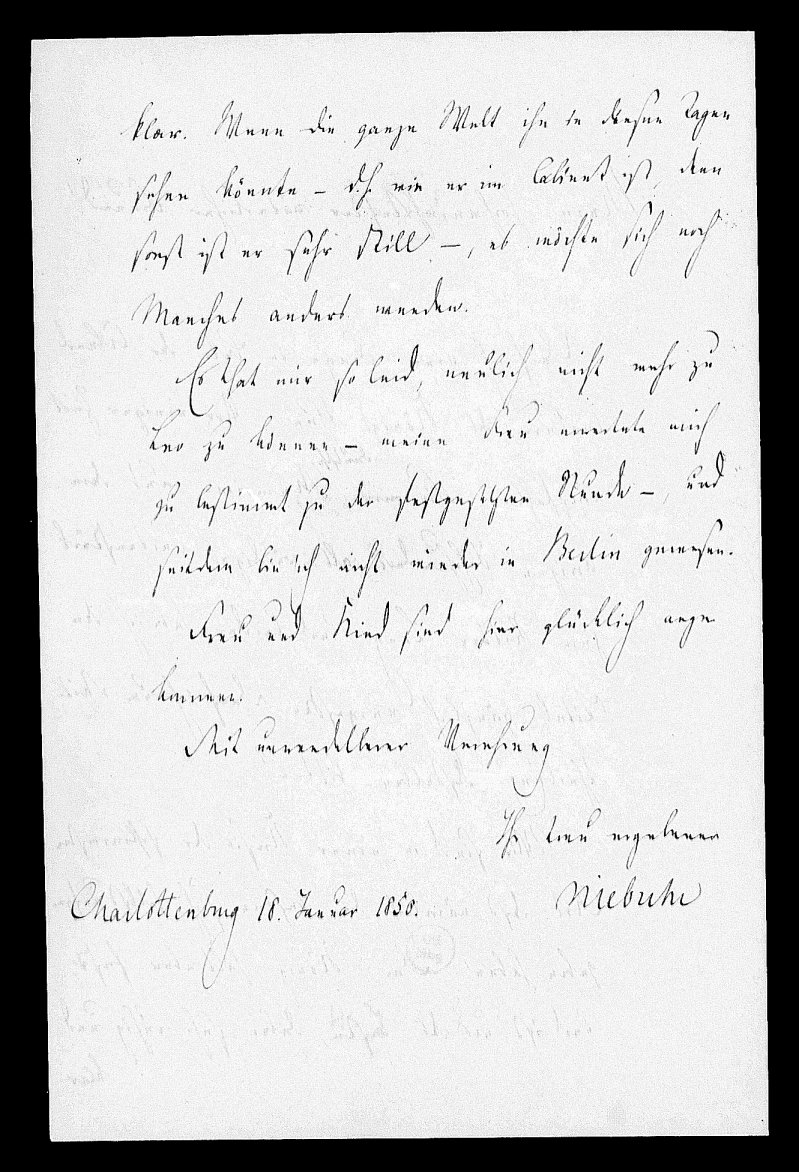 klar. Wenn die ganze Welt ihn in diesen Tagen
sehen könnte – d.h. wie er im Cabinet ist, denn
sonst ist er sehr still –, es möchte sich noch
Manches anders wenden.
Es that mir so leid, neulich nicht mehr zu
Leo zu können – meine Frau erwartete mich
zu bestimmt zu der festgesetzten Stunde –, und
seitdem bin ich nicht wieder in Berlin gewesen.
Frau und Kind sind hier glücklich ange
kommen.
Mit unwandelbarer Verehrung
Ihr treu ergebener
Niebuhr
Charlottenburg 18. Januar 1850.